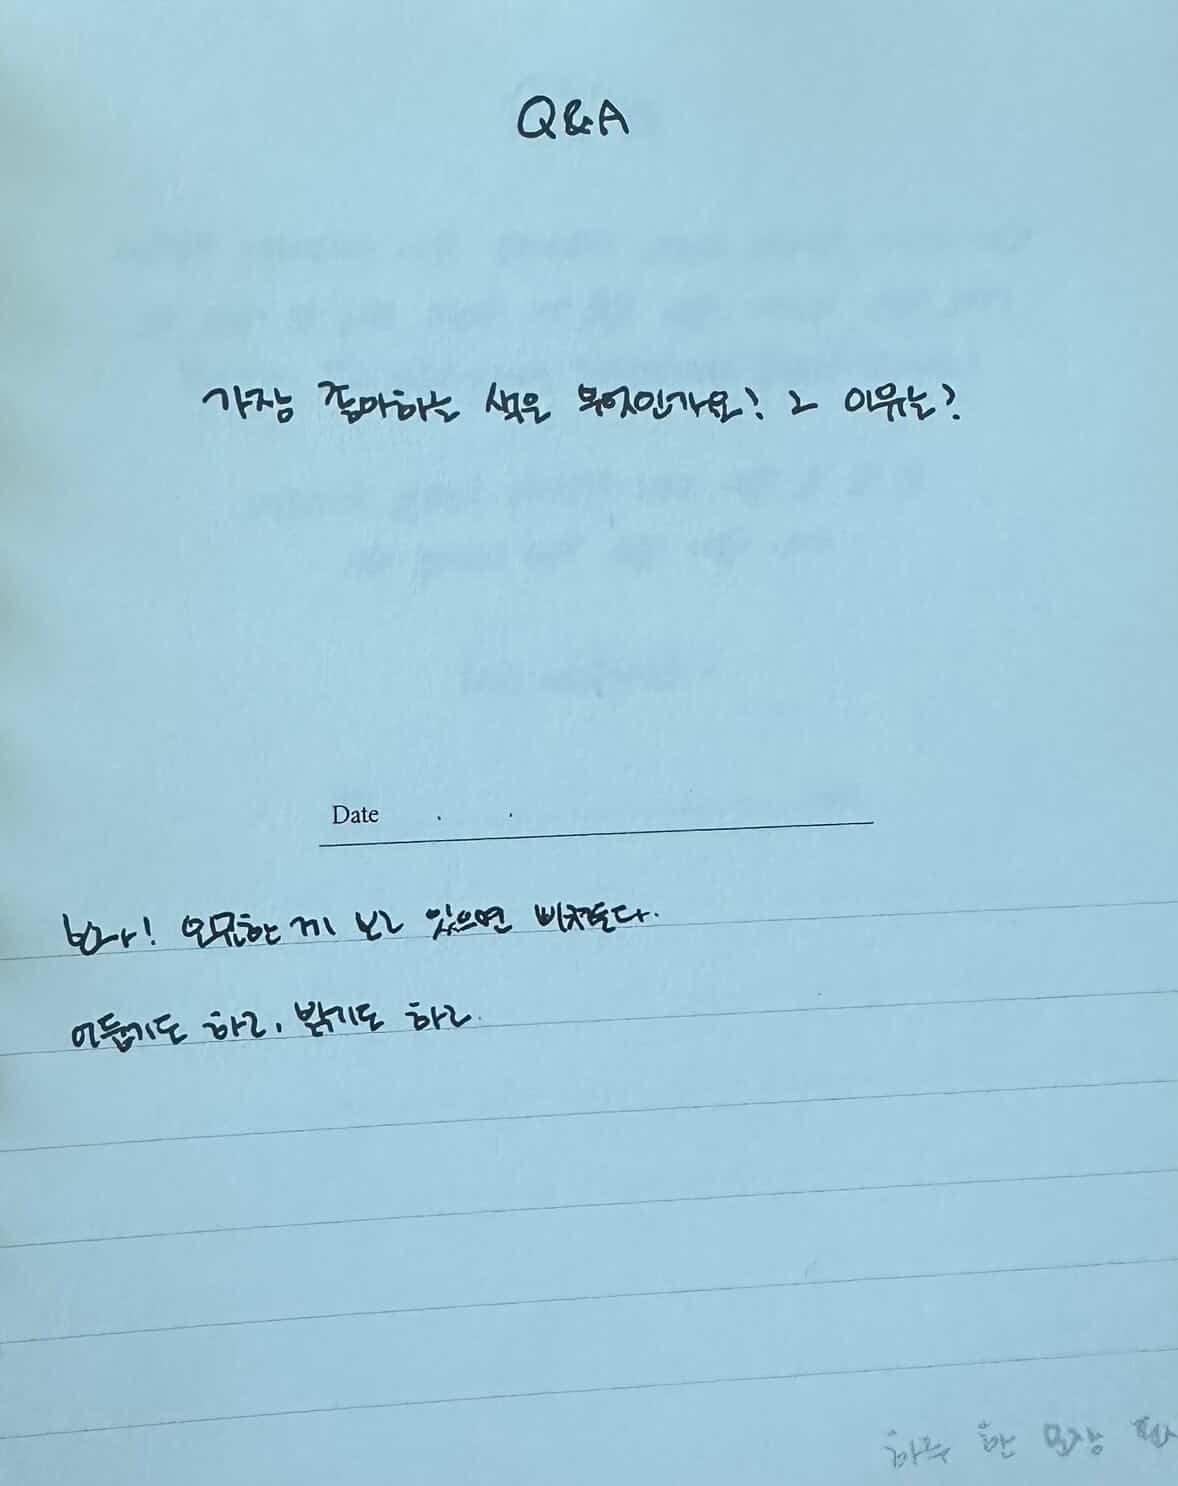 Q&A
가장 좋아하는 색은 무엇인가요? 그 이유는?
Date . .
보라! 오묘한 게 보고 있으면 빠져든다.
어둡기도 하고, 밝기도 하고.
하루 한 문장